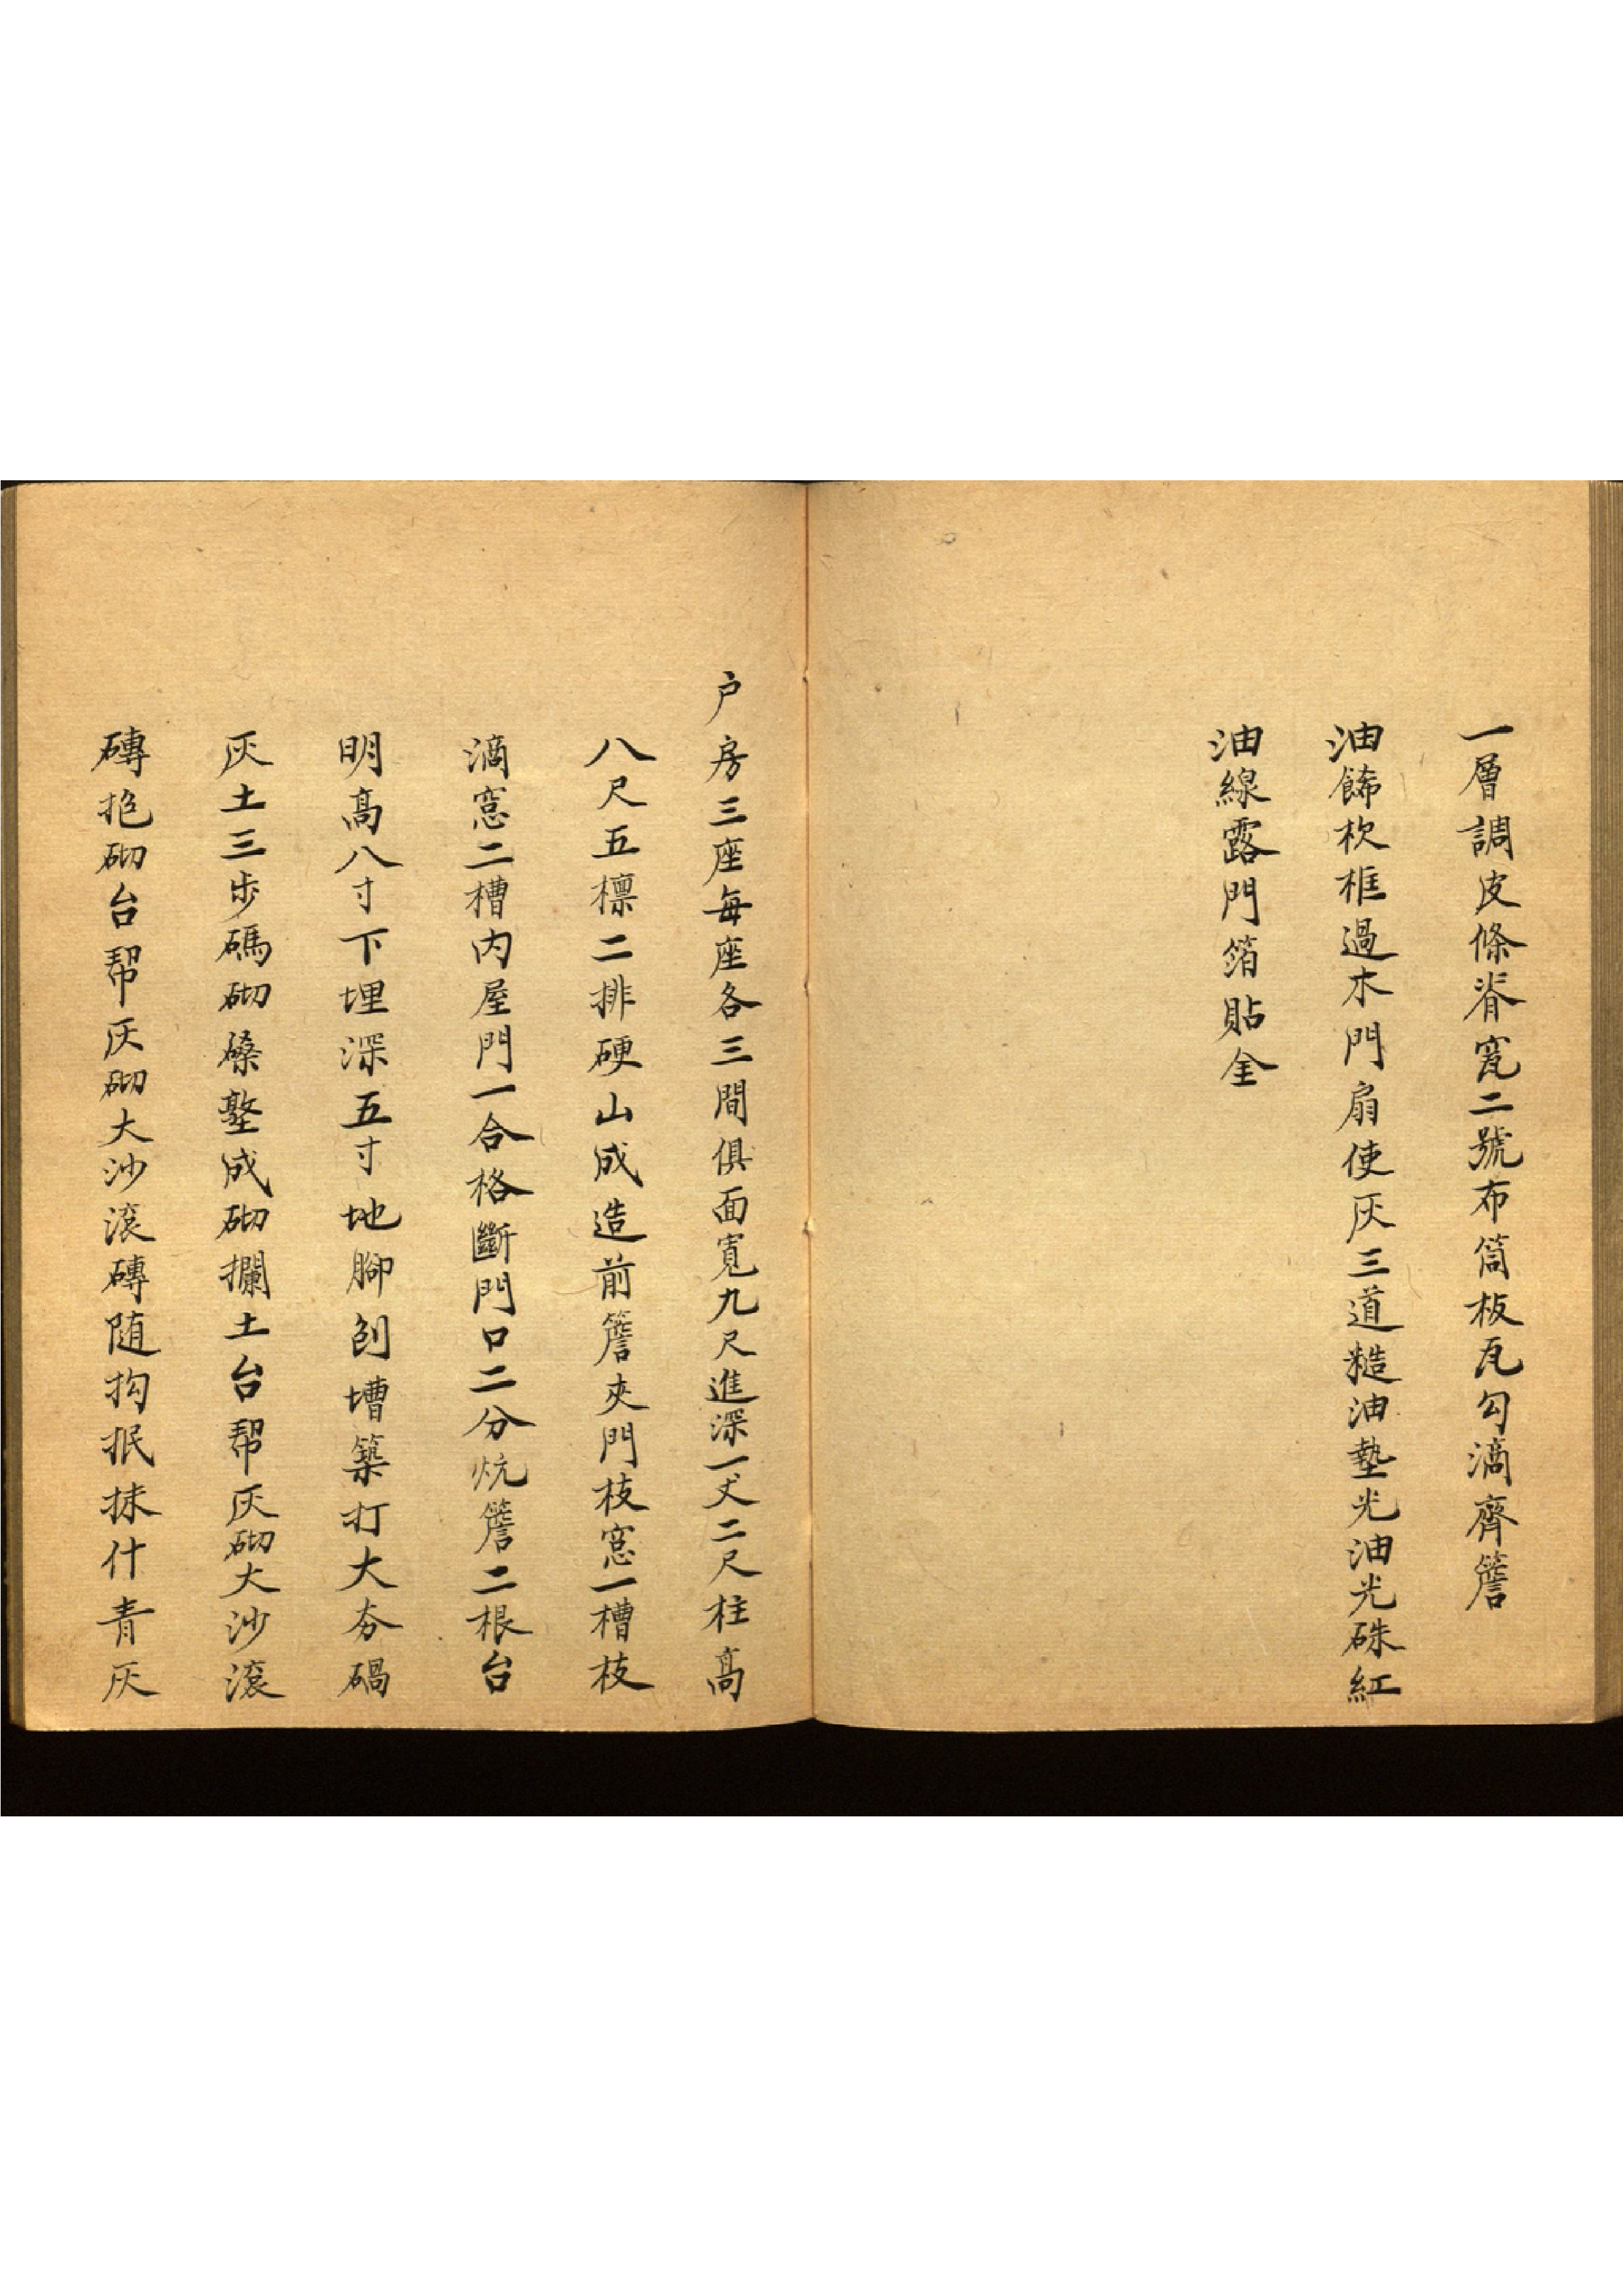 一層調皮條脊窎二號布筒板瓦勾滴齊簷
油餙枕框過木門扇使灰三道糙油墊光油光硃紅
油線露門箔貼金
户房三座每座各三間俱面寬九尺進深一丈二尺柱高
八尺五檩二排硬山成造前簷夾門枝窓一槽枝
滴窓二槽内屋門一合格斷門口二分炕簷二根台
明高八寸下埋深五寸地腳刨槽築打大夯碢
灰土三步碼砌磉墪成砌攔土台帮灰砌大沙滾
磚抱砌台帮灰砌大沙滾磚随抅抿抹什青灰